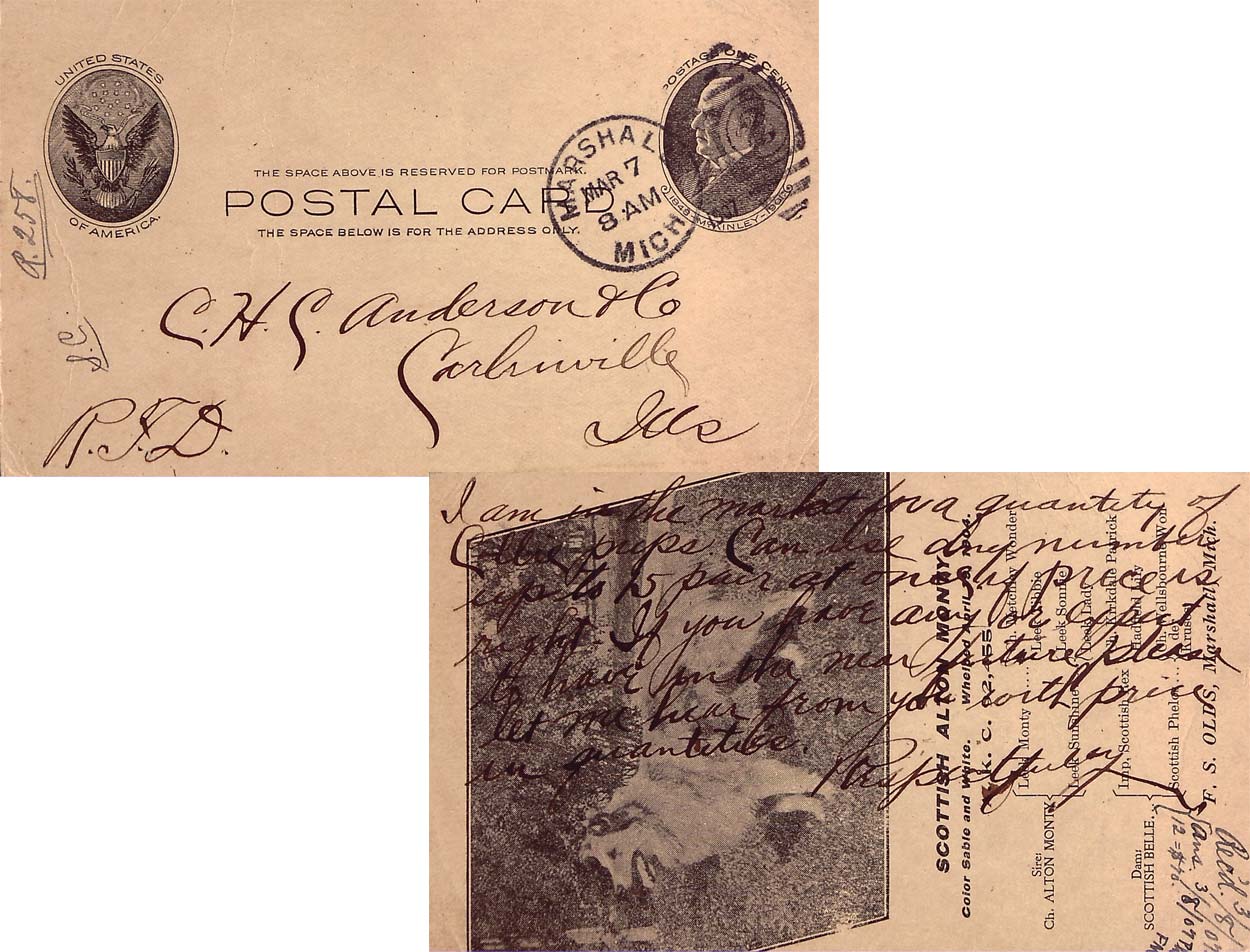 UNITED STATES
OF AMERICA.
POSTAGE ONE CENT.
McKINLEY
THE SPACE ABOVE IS RESERVED FOR POSTMARK.
POSTAL CARD
THE SPACE BELOW IS FOR THE ADDRESS ONLY.
MARSHALL
MAR 7
8 AM
1907
MICH
R. 258.
C. H. C. Anderson & Co
Carlinville
Ills
R.F.D.
I am in the market for a quantity of
Collie pups. Can use any number
up to 15 pair at once if price is
right. If you have any or expect
to have in the near future please
let me hear from you with price
in quantities.
Respectfully
SCOTTISH ALTON MONTY.
Color Sable and White. Whelped April 1904.
A. K. C. 82,455
Sire:
Ch. ALTON MONTY
Leek Monty
Leek Sunshine
Ch. Wonder
Leek Bibbie
Leek Sonnie
Leek Lady
Dam:
SCOTTISH BELLE.
Imp. Scottish Rex
Scottish Phelo
Ch. Parkdale Patrick
Lady
Ch. Wellsbourne Won
F. S. OLDS, Marshall, Mich.
Ans. 3/8/07